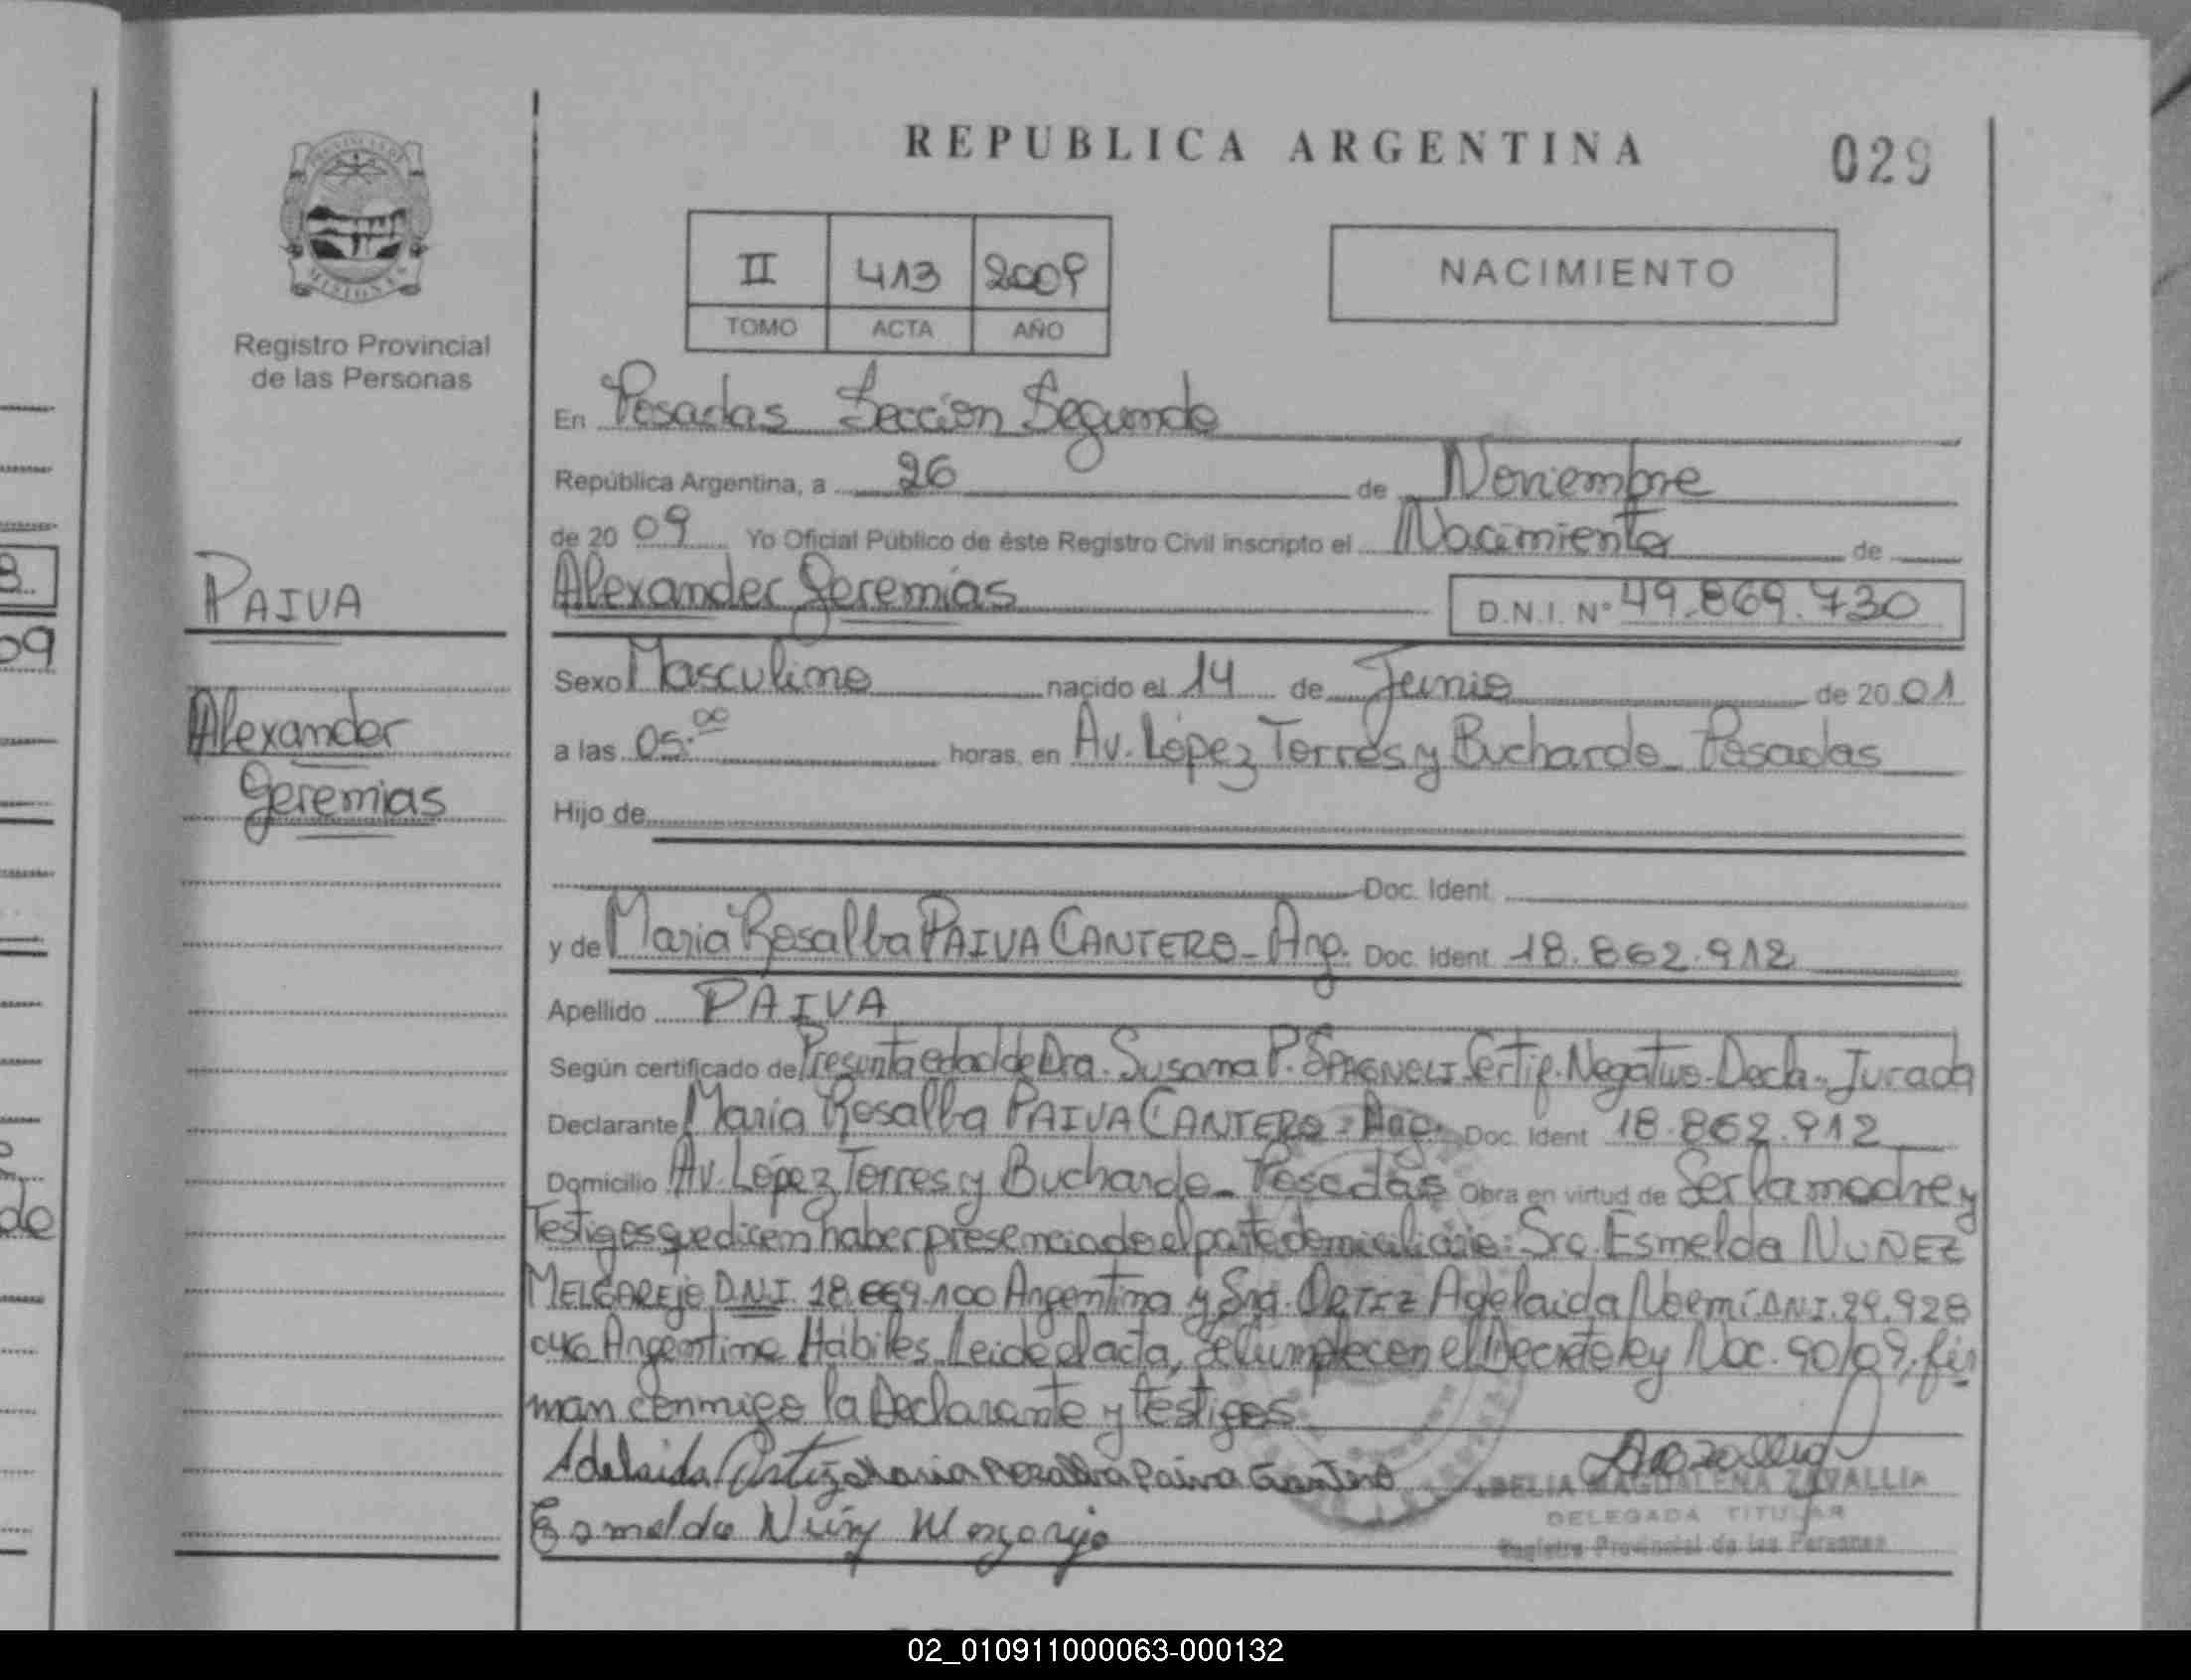 REPUBLICA ARGENTINA
029
II 413 2009
TOMO ACTA AÑO
NACIMIENTO
PROVINCIA DE MISIONES
Registro Provincial
de las Personas
PAIVA
Alexander
Geremias
En Posadas Sección Segunda
República Argentina, a 26 de Noviembre
de 20 09 Yo Oficial Público de éste Registro Civil inscripto el Nacimiento de
Alexander Geremias D.N.I. N° 49.869.730
Sexo Masculino nacido el 14 de Junio de 20 01
a las 05:00 horas, en Av. López Torres y Buchardo - Posadas
Hijo de
Doc. Ident.
y de Maria Rosalba PAIVA CANTERO - Arg. Doc. Ident. 18.862.912
Apellido PAIVA
Según certificado de Presunta edad de Dra. Susana P. SPAGNOLI Certif. Negativo - Decla. Jurada
Declarante Maria Rosalba PAIVA CANTERO - Arg. Doc. Ident. 18.862.912
Domicilio Av. López Torres y Buchardo - Posadas Obra en virtud de Ser la madre y
Testigos que dicen haber presenciado el parto domiciliario: Sra. Esmelda NUÑEZ
MELGAREJO D.N.I. 18.669.100 Argentina y Sra. ORTIZ Adelaida Noemí D.N.I. 29.928
046 Argentina Hábiles. Leida el acta, se cumple con el Decreto ley Nac. 90/09, fir
man conmigo la Declarante y testigos
Adelaida Ortiz Maria Rosalba Paiva Cantero
DELIA MAGDALENA ZAVALLIA
DELEGADA TITULAR
Registro Provincial de las Personas
Esmelda Nuñez Melgarejo
02_010911000063-000132